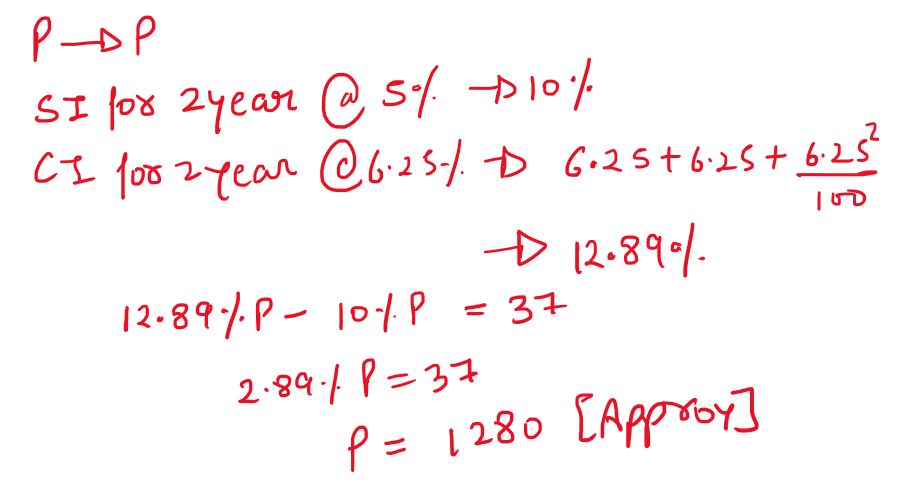 P → P
SI for 2year @ 5% → 10%
CI for 2year @ 6.25% → 6.25 + 6.25 + 6.25²/100
→ 12.89%
12.89% P - 10% P = 37
2.89% P = 37
P = 1280 [Approx]